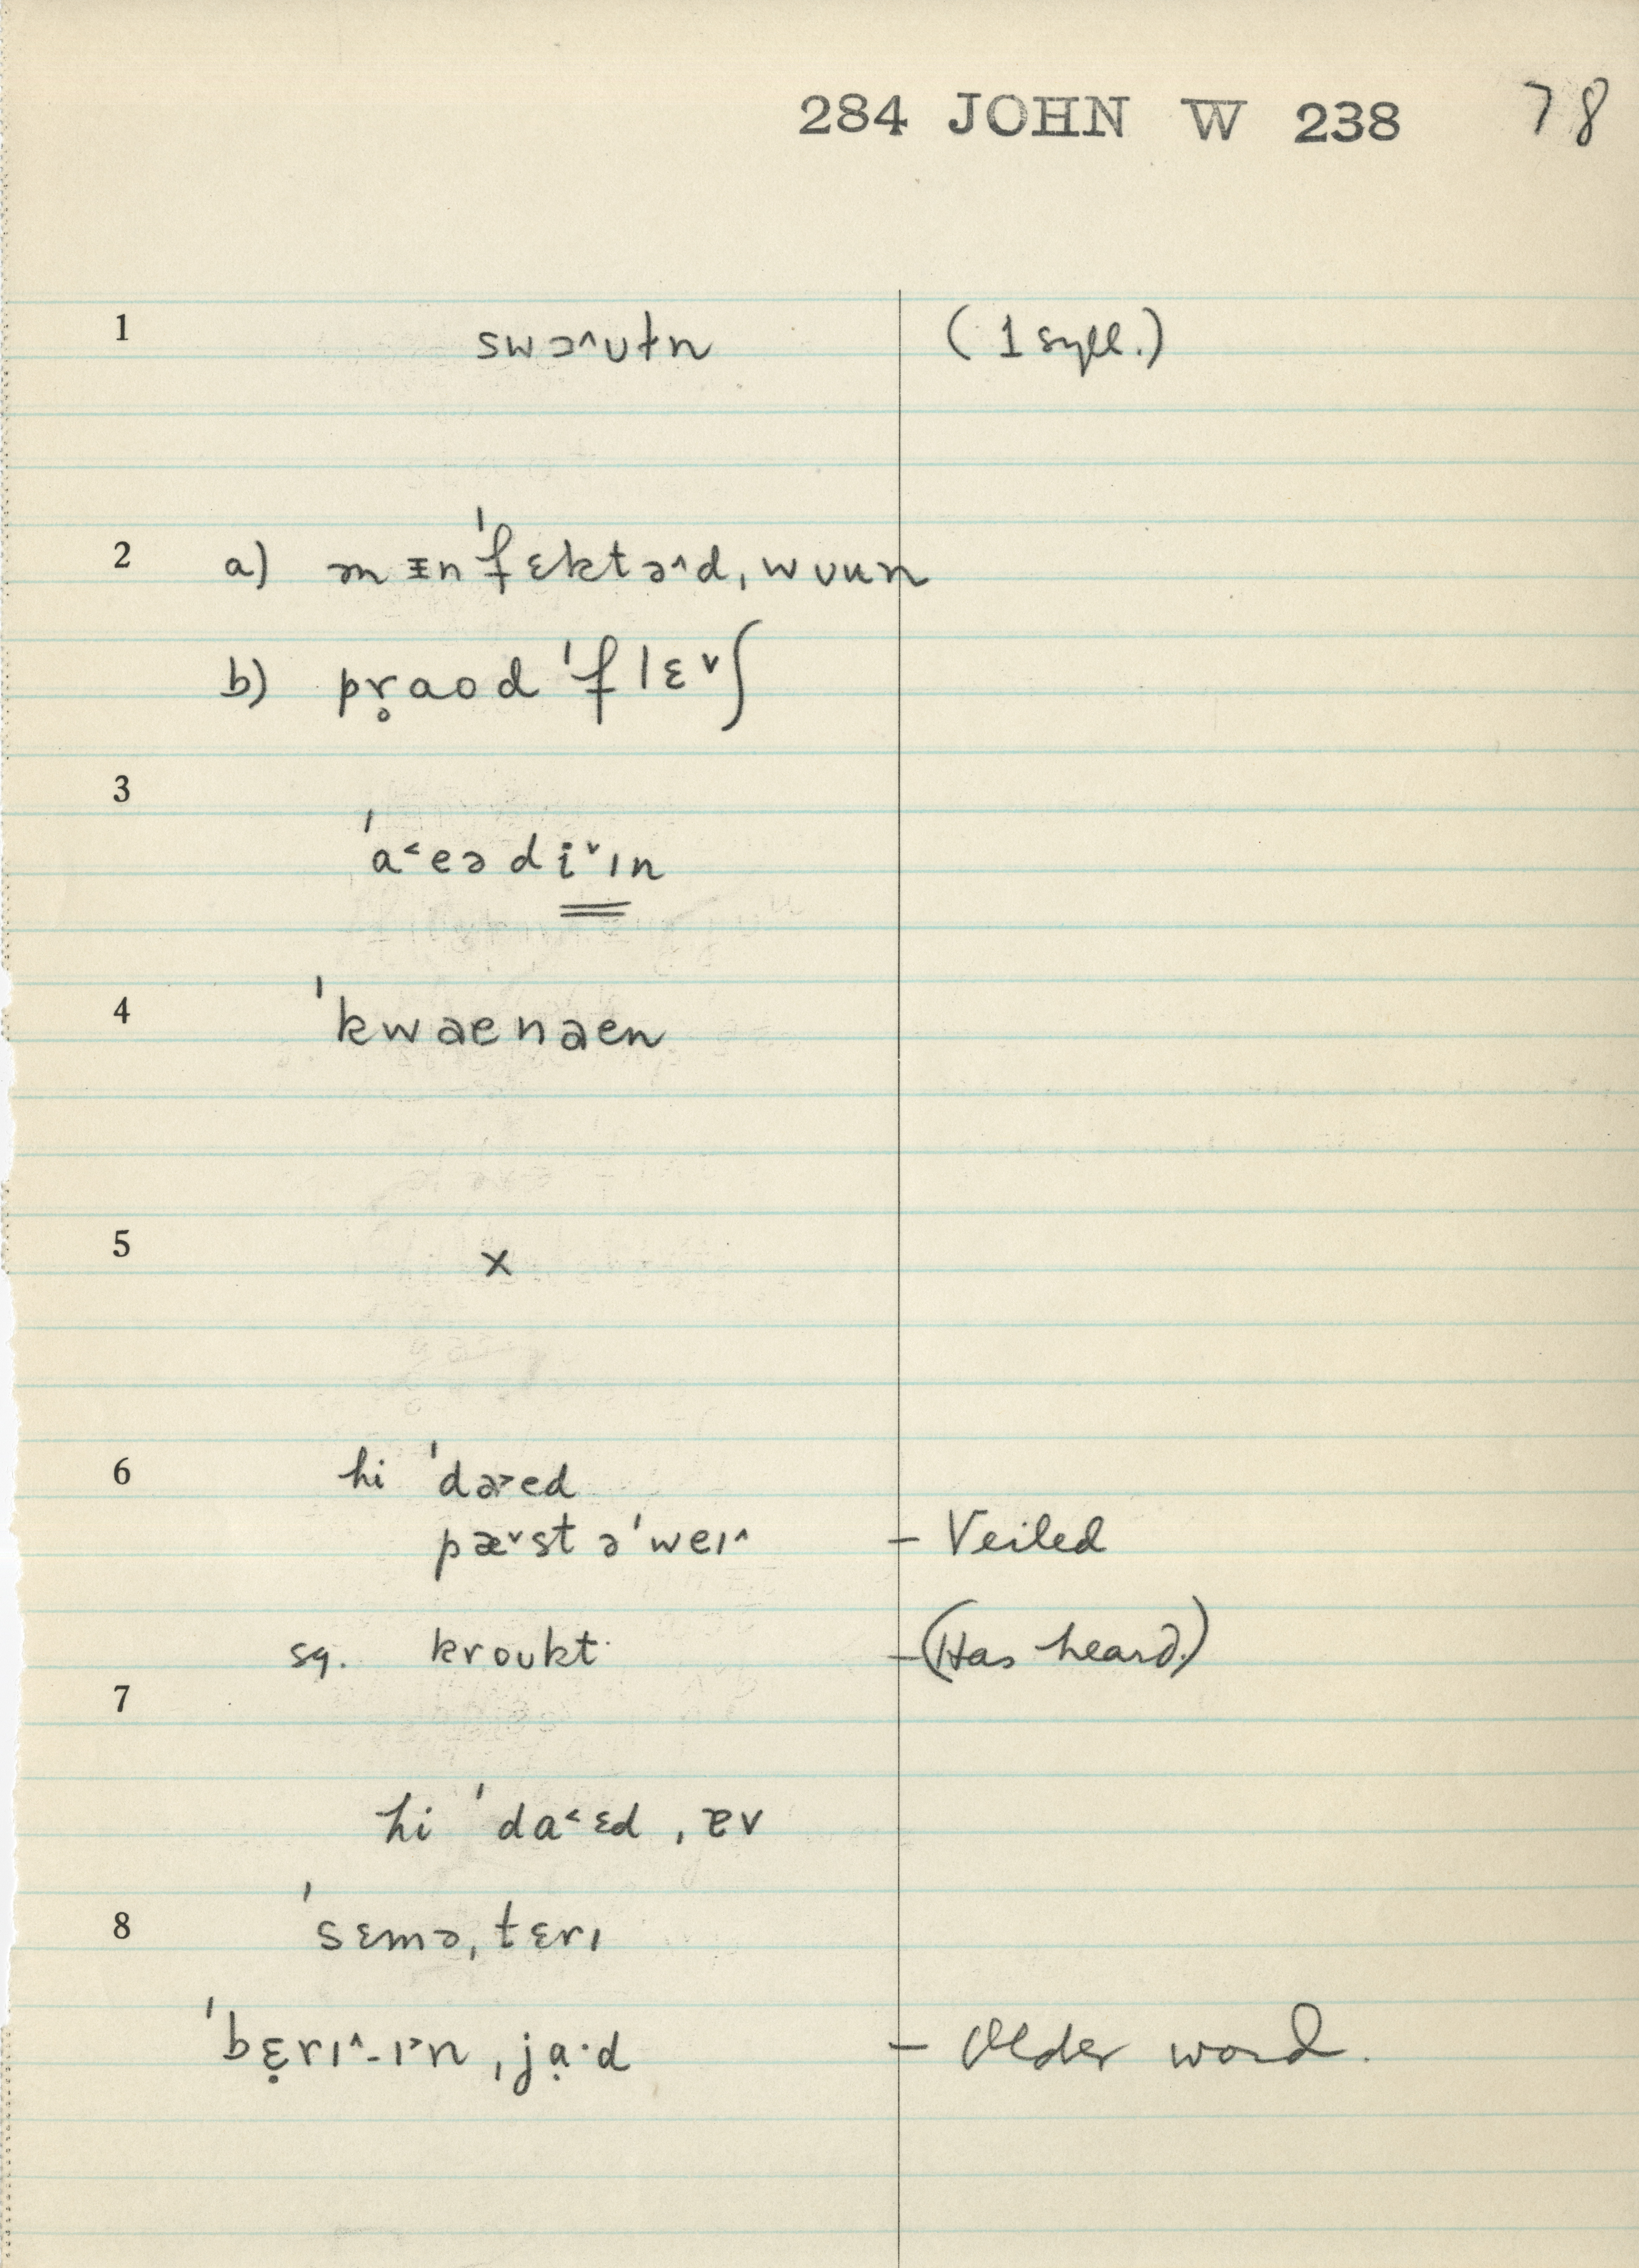 284 JOHN W 238 78
1 swɔ^ʊtn (1 syll.)
2 a) ɪn'fɛktə^d, wuun
b) pr̥aod 'flɛˇʃ
3
'a˂eədiˇɪn
4 'kwaenaen
5 x
6 hi 'da˃ed
pæˇst ə'weɪ^ – Veiled
sq. kroukt – (Has heard.)
7
hi 'da˂ɛd, ɐv
8 'sɛmə,tɛrɪ
'bɛ̣rɪ^-ɪ˃n,jạ·d – Older word.